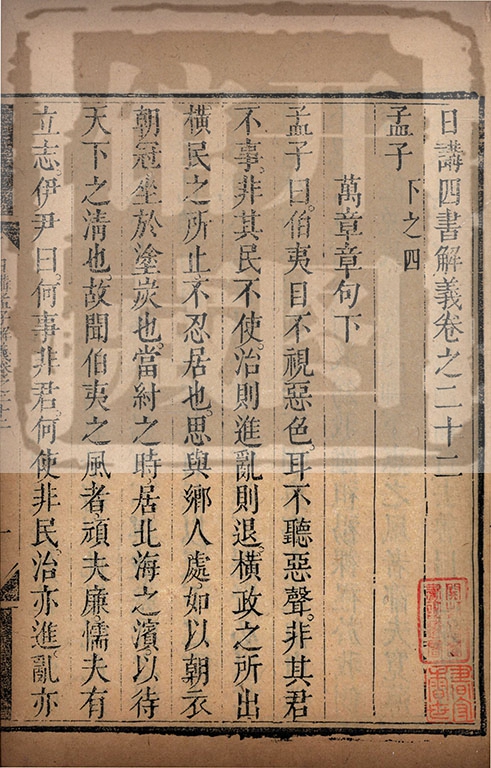 日講四書解義卷之二十二
孟子 下之四
萬章章句下
孟子曰伯夷目不視惡色耳不聽惡聲非其君
不事非其民不使治則進亂則退橫政之所出
橫民之所止不忍居也思與鄉人處如以朝衣
朝冠坐於塗炭也當紂之時居北海之濱以待
天下之清也故聞伯夷之風者頑夫廉懦夫有
立志伊尹曰何事非君何使非民治亦進亂亦